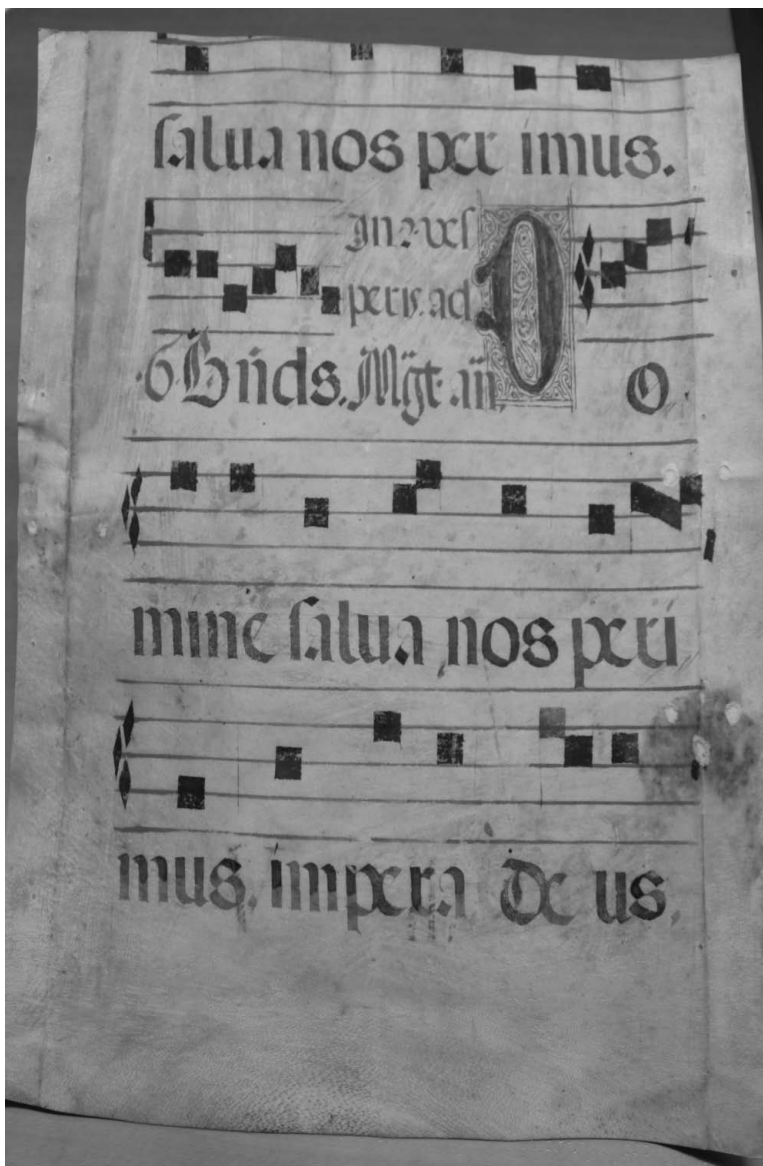 salua nos per imus.
In 2. ves
peris. ad
6 Bn̄ds. Mg̃t. añ. D o
mine salua nos peri
mus. impera de us.